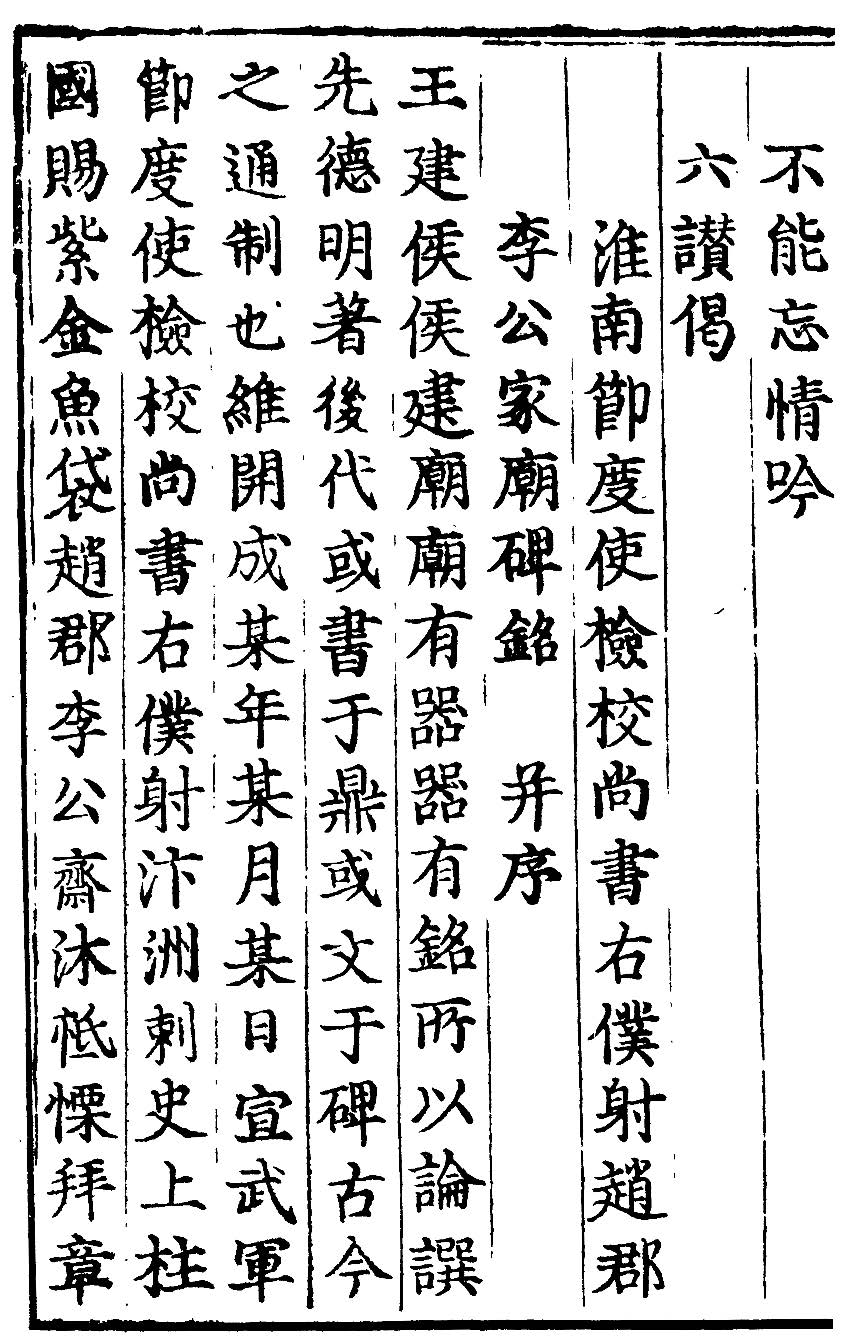 不能忘情吟
六讃偈
淮南節度使檢校尚書右僕射趙郡
李公家廟碑銘 并序
王建侯侯建廟廟有器器有銘所以論譔
先德明著後代或書于鼎或文于碑古今
之通制也維開成某年某月某日宣武軍
節度使檢校尚書右僕射汴洲刺史上柱
國賜紫金魚袋趙郡李公齋沐祗慄拜章